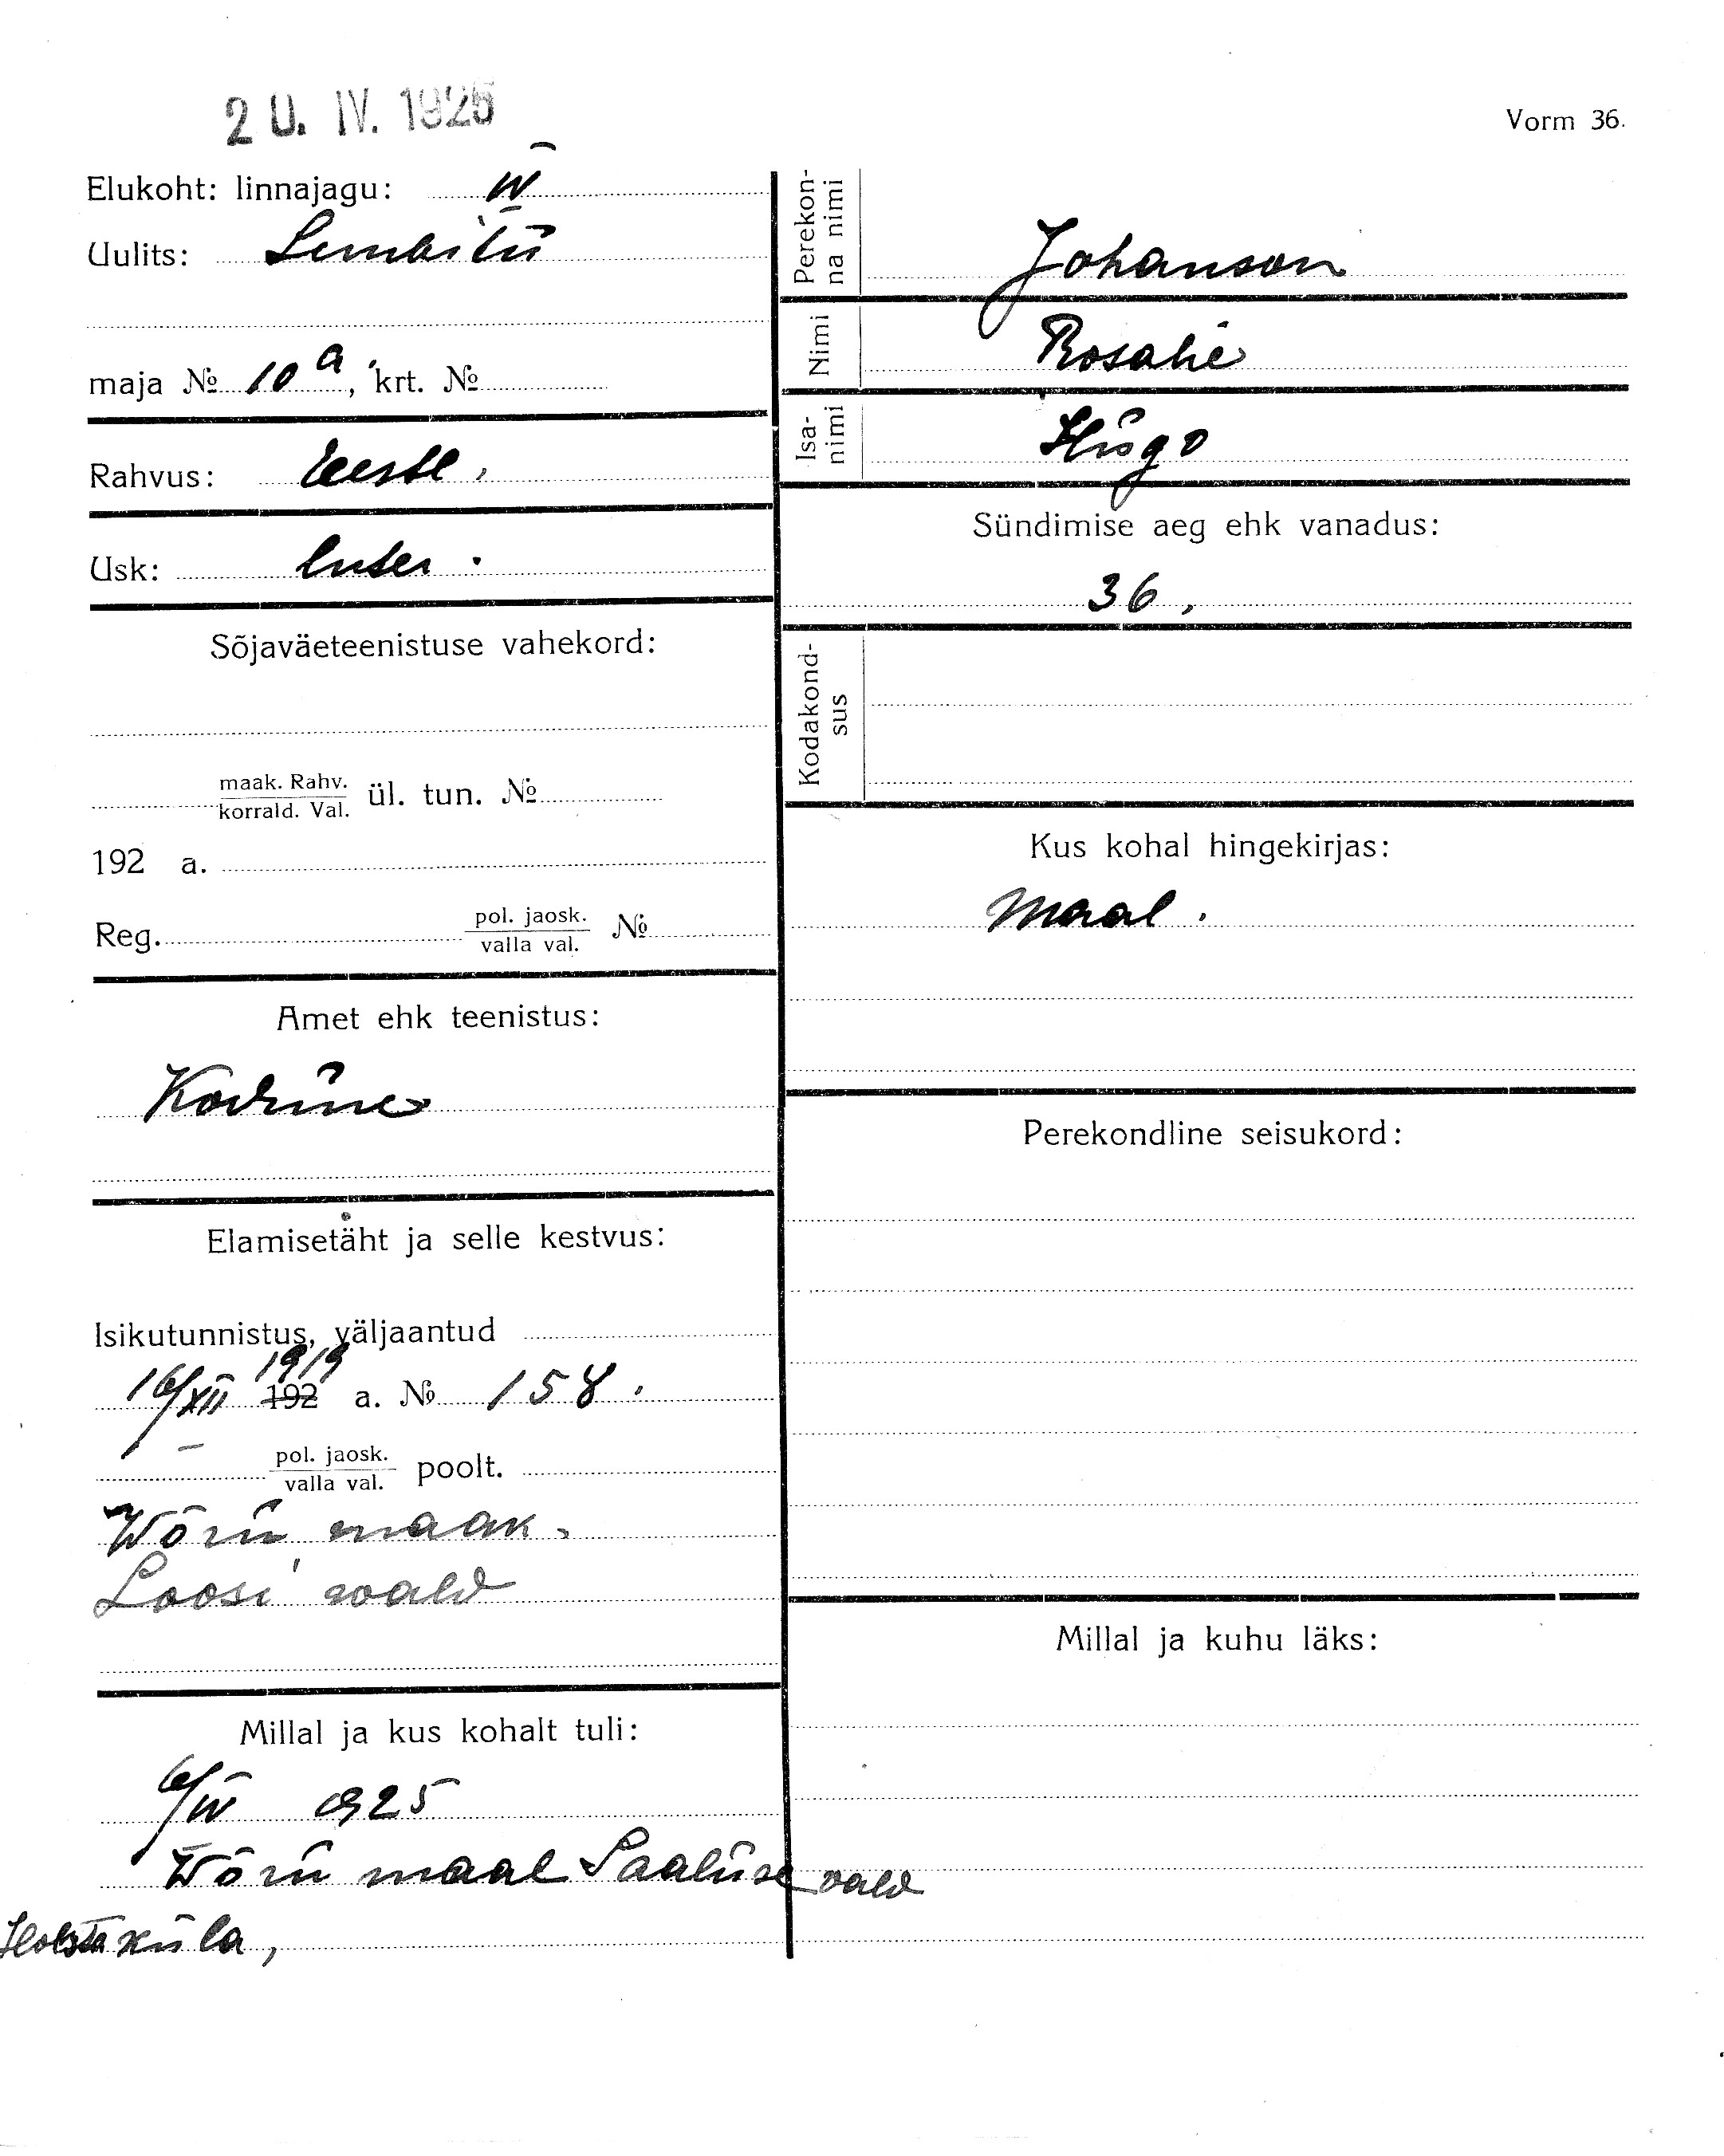 20. IV. 1925
Vorm 36.
Elukoht: linnajagu: IV
Uulits: Lembitu
maja № 10 a, krt. №
Rahvus: Eesti.
Usk: luter.
Sõjaväeteenistuse vahekord:
maak. Rahv.
korrald. Val. ül. tun. №
192 a.
Reg. pol. jaosk.
valla val. №
Amet ehk teenistus:
Kodune
Elamisetäht ja selle kestvus:
Isikutunnistus, väljaantud
16/XII 1919 192 a. № 158.
pol. jaosk.
valla val. poolt.
Wõru maak.
Loosi vald
Millal ja kus kohalt tuli:
6/IV 1925
Wõru maal Saaluse vald
küla,
Perekonna nimi
Johanson
Nimi
Rosalie
Isa-
nimi
Hugo
Sündimise aeg ehk vanadus:
36.
Kodakond-
sus
Kus kohal hingekirjas:
maal.
Perekondline seisukord:
Millal ja kuhu läks: